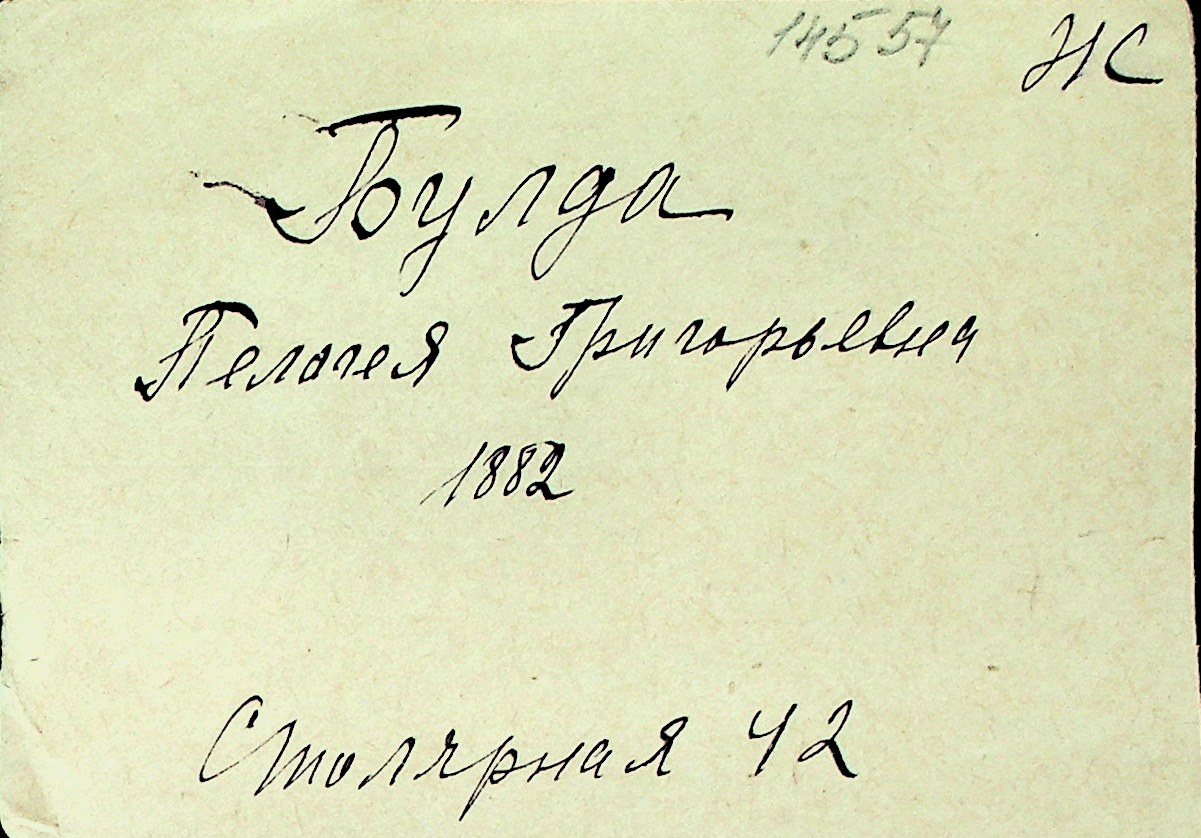 14557 НС
Булда
Пелагея Григорьевна
1882
Столярная 42